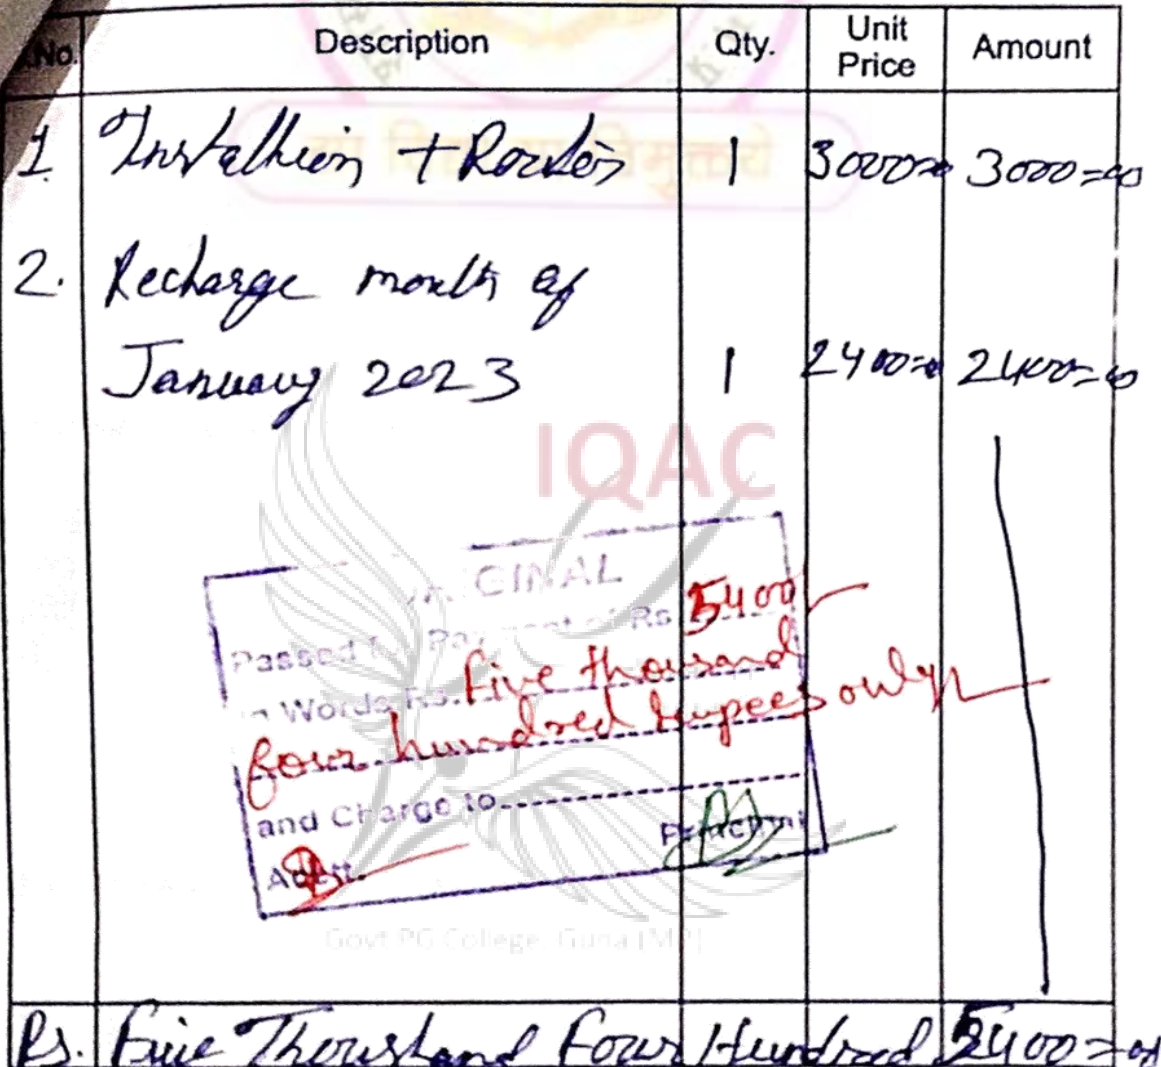 No. Description Qty. Unit Price Amount
1. Installion + Router 1 3000=00 3000=00
2. Recharge month of
January 2023 1 2400=00 2400=00
IQAC
GINAL
Passed Payment of Rs 5400
in Words Rs. five thousand
four hundred rupees only
and Charge to
Acctt.
Govt PG College, Guna (MP)
Rs. Five Thoushand Four Hundred 5400=00